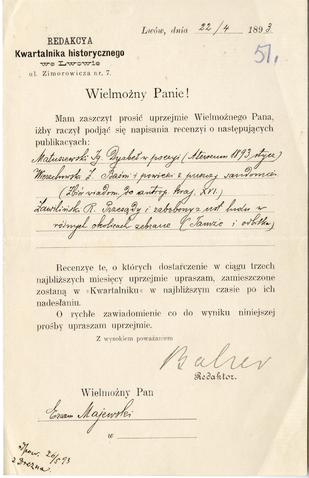 REDAKCYA
Kwartalnika historycznego
we Lwowie
ul. Zimorowicza nr. 7.
Lwów, dnia 22/4 1893
51.
Wielmożny Panie!
Mam zaszczyt prosić uprzejmie Wielmożnego Pana,
iżby raczył podjąć się napisania recenzyi o następujących
publikacyach:
Matuszewski Ig. Dyabeł w poezyi (Ateneum 1893, stycz
Z. Baśni i powieści z puszczy sandomier
(Zbiór wiadom. do antrop. kraj. XVI.
Zawiliński R. Przesądy i zabobony z ust ludu w
różnych okolicach zebrane (Tamże i odbitka)
Recenzye te, o których dostarczenie w ciągu trzech
najbliższych miesięcy uprzejmie upraszam, zamieszczone
zostaną w »Kwartalniku« w najbliższym czasie po ich
nadesłaniu.
O rychłe zawiadomienie co do wyniku niniejszej
prośby upraszam uprzejmie.
Z wysokiem poważaniem
Balzer
Redaktor.
Wielmożny Pan
Erazm Majewski
w
z Drezna